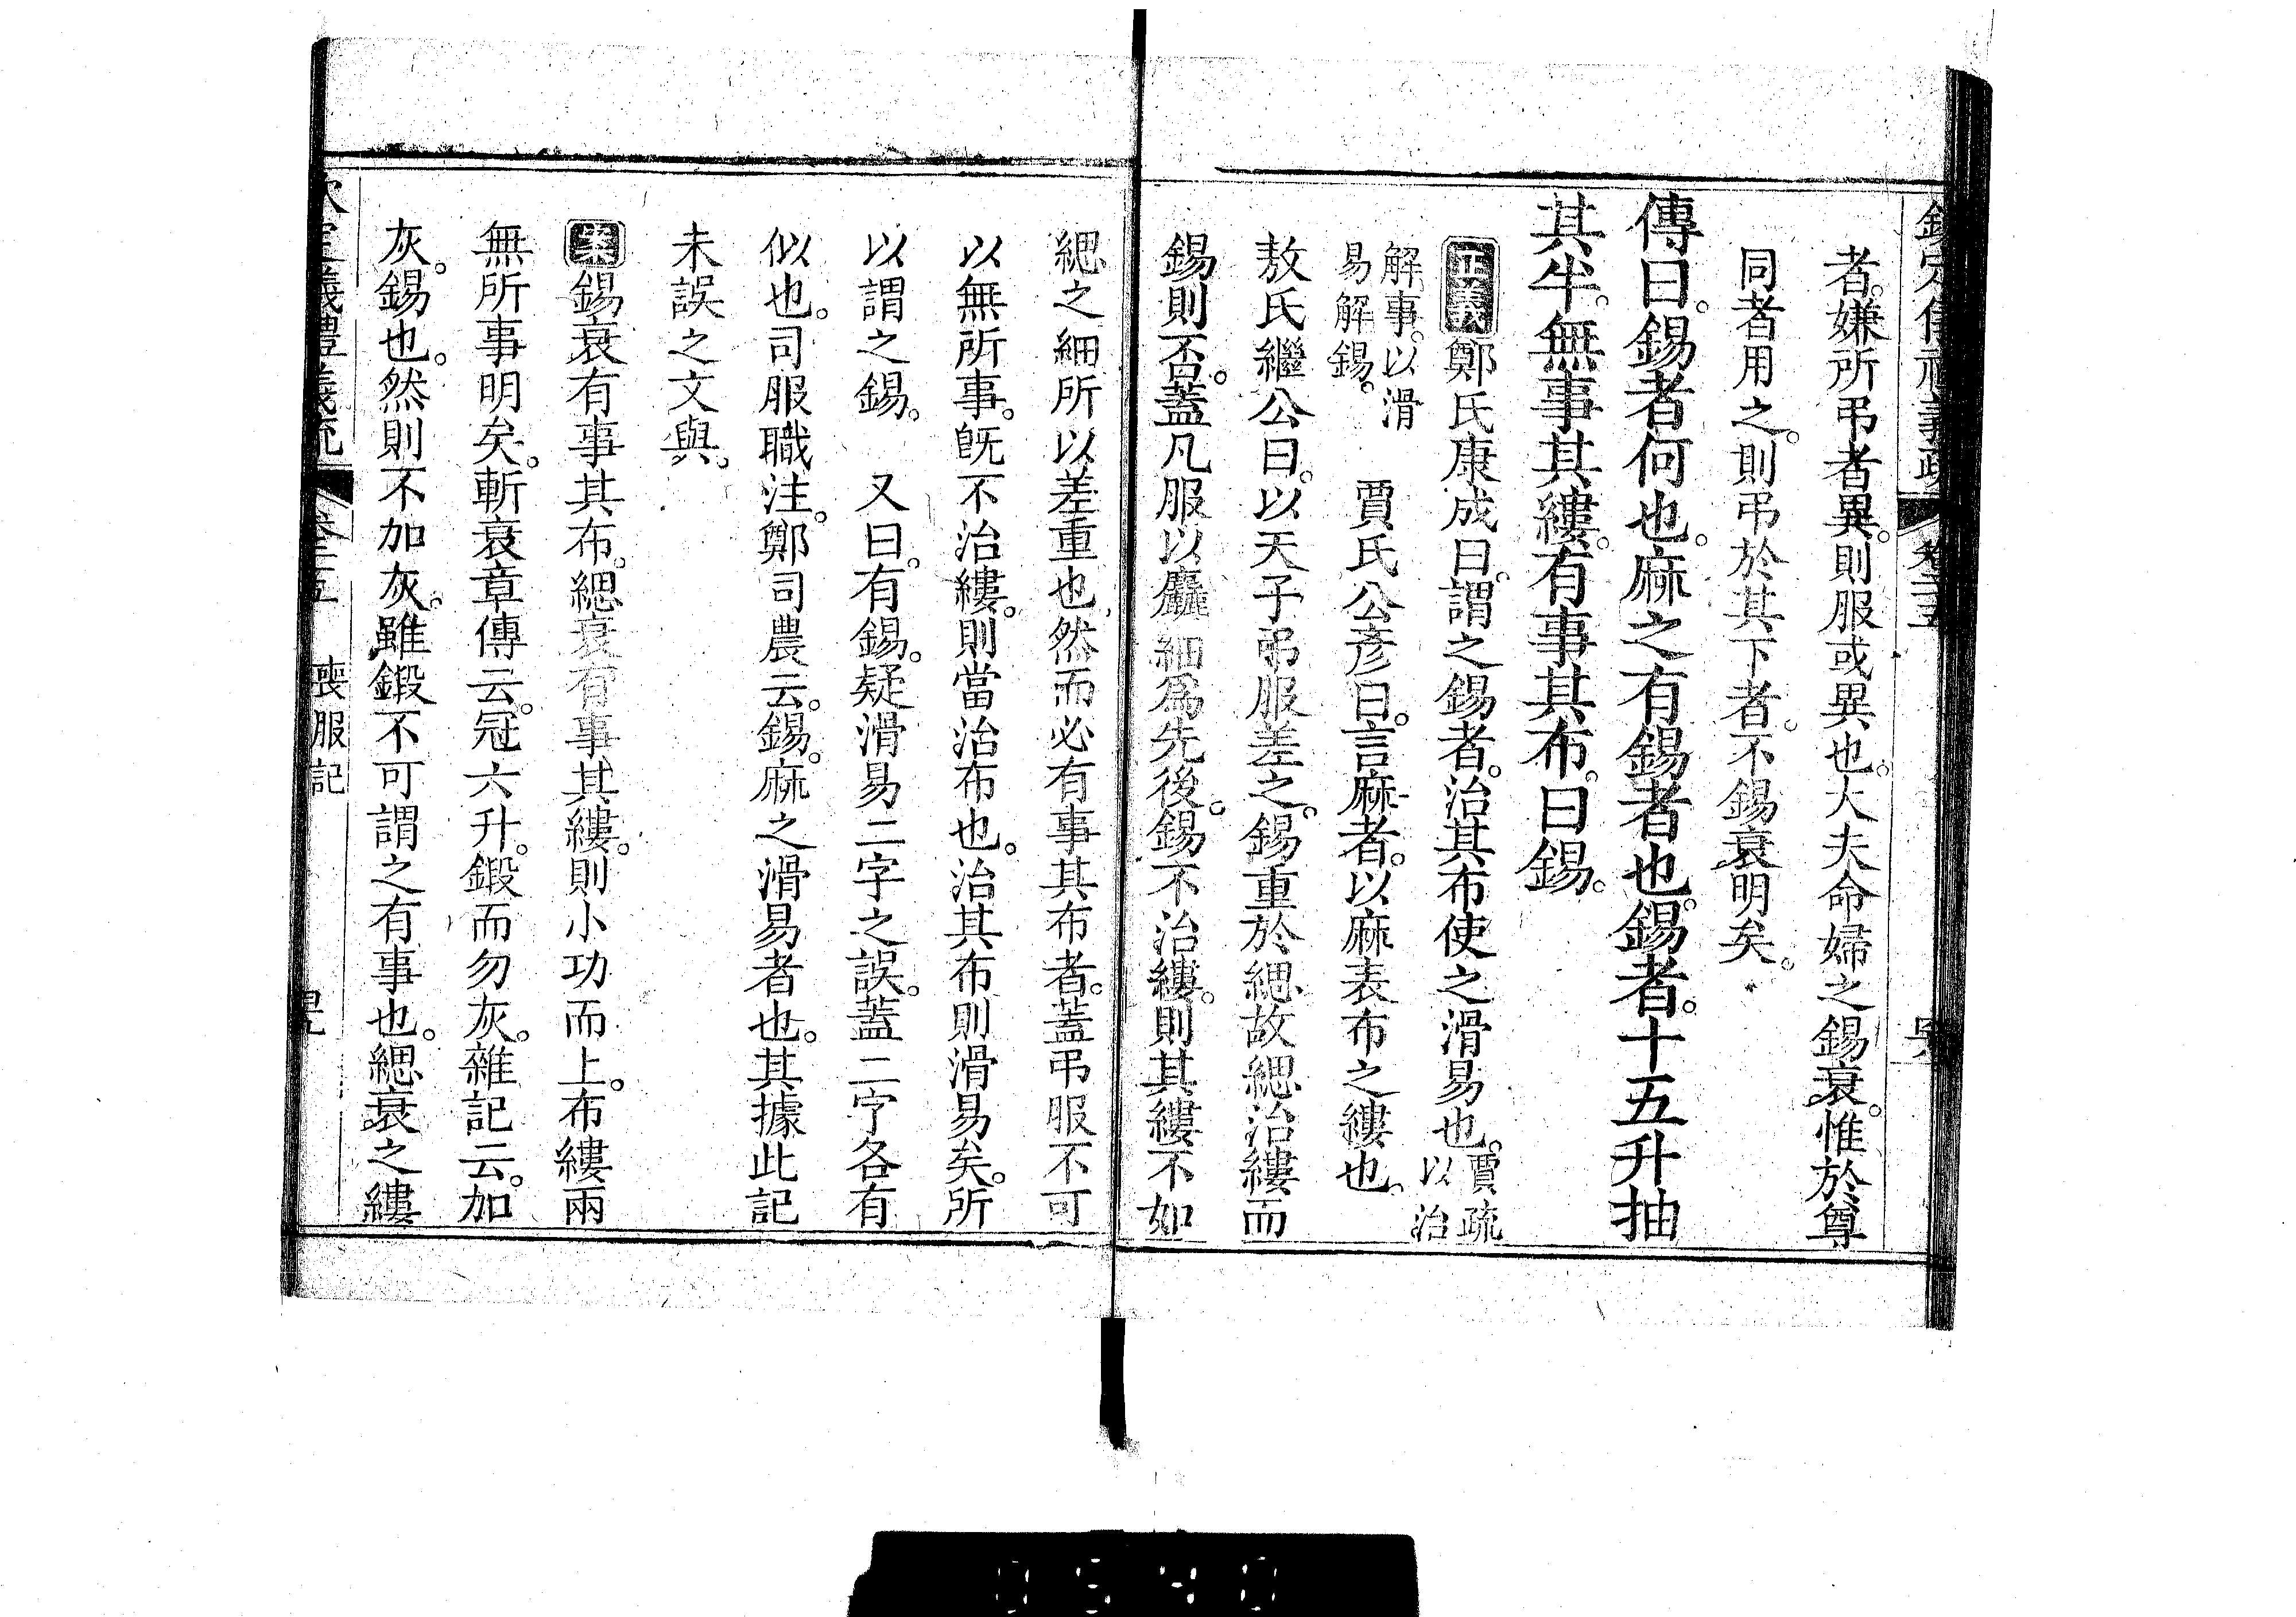 欽定儀禮義疏 卷二十五
者。嫌所弔者異。則服或異也。大夫命婦之錫衰。惟於尊
同者用之。則弔於其下者。不錫衰明矣。
傳曰。錫者何也。麻之有錫者也。錫者。十五升抽
其半。無事其縷。有事其布。曰錫。
正義鄭氏康成曰。謂之錫者。治其布使之滑易也。賈疏以治
解事。以滑易解錫。 賈氏公彥曰。言麻者。以麻表布之縷也。
敖氏繼公曰。以天子弔服差之。錫重於緦。故緦治縷而
錫則否。蓋凡服以麤細爲先後。錫不治縷。則其縷不如
緦之細。所以差重也。然而必有事其布者。蓋弔服不可
以無所事。旣不治縷。則當治布也。治其布則滑易矣。所
以謂之錫。 又曰。有錫。疑滑易二字之誤。蓋二字各有
似也。司服職注。鄭司農云。錫。麻之滑易者也。其據此記
未誤之文與。
案錫衰有事其布。緦衰有事其縷。則小功而上。布縷兩
無所事明矣。斬衰章傳云。冠六升。鍛而勿灰。雜記云。加
灰。錫也。然則不加灰。雖鍛不可謂之有事也。緦衰之縷
欽定儀禮義疏 卷二十五 喪服記